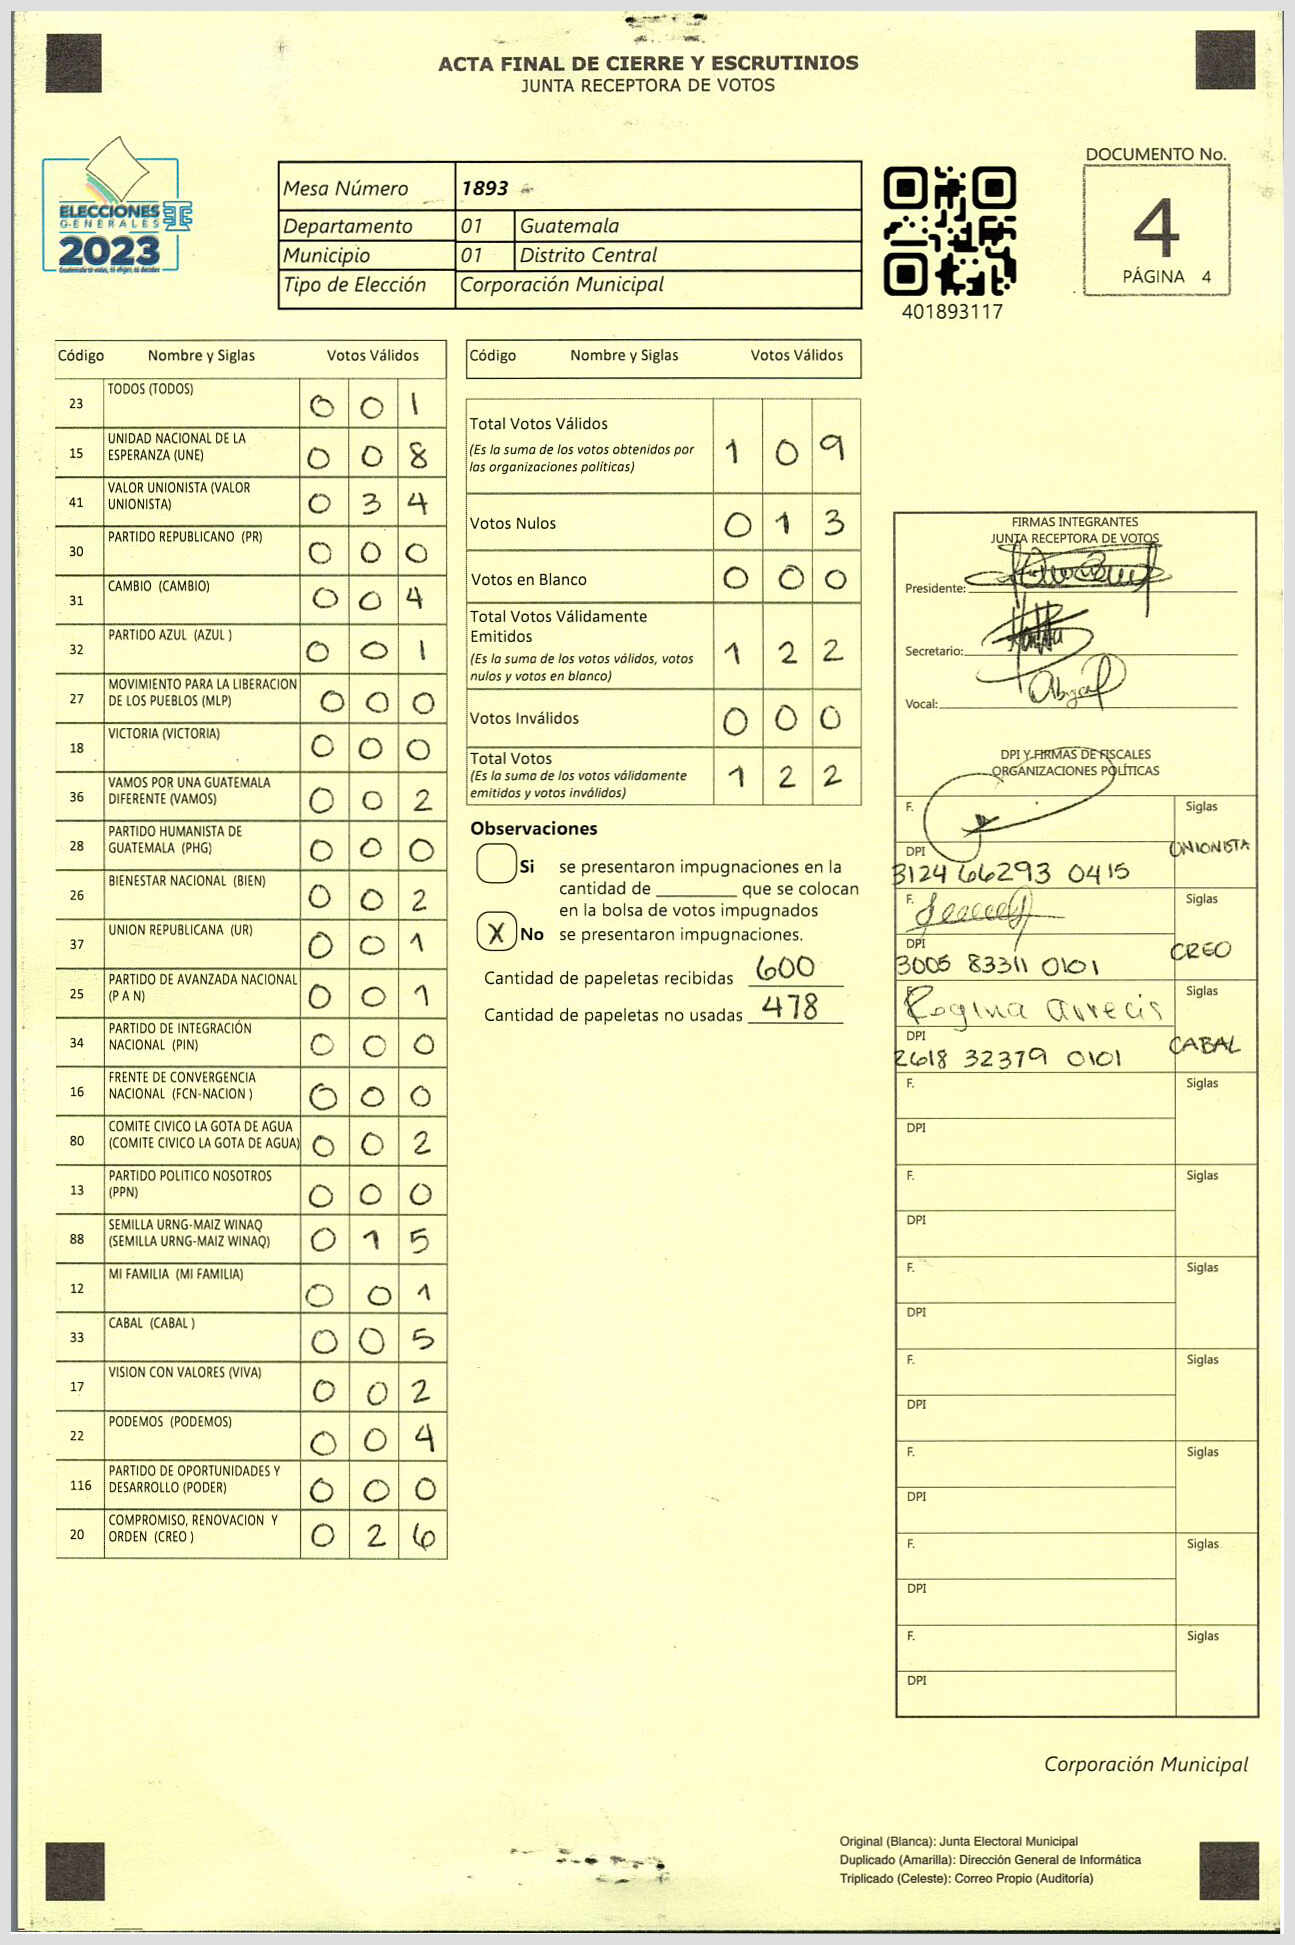 ACTA FINAL DE CIERRE Y ESCRUTINIOS
JUNTA RECEPTORA DE VOTOS
ELECCIONES
GENERALES
2023
Mesa Número 1893
Departamento 01 Guatemala
Municipio 01 Distrito Central
Tipo de Elección Corporación Municipal
401893117
DOCUMENTO No.
4
PÁGINA 4
Código Nombre y Siglas Votos Válidos
23 TODOS (TODOS) 0 0 1
15 UNIDAD NACIONAL DE LA
ESPERANZA (UNE) 0 0 8
41 VALOR UNIONISTA (VALOR
UNIONISTA) 0 3 4
30 PARTIDO REPUBLICANO (PR) 0 0 0
31 CAMBIO (CAMBIO) 0 0 4
32 PARTIDO AZUL (AZUL ) 0 0 1
27 MOVIMIENTO PARA LA LIBERACION
DE LOS PUEBLOS (MLP) 0 0 0
18 VICTORIA (VICTORIA) 0 0 0
36 VAMOS POR UNA GUATEMALA
DIFERENTE (VAMOS) 0 0 2
28 PARTIDO HUMANISTA DE
GUATEMALA (PHG) 0 0 0
26 BIENESTAR NACIONAL (BIEN) 0 0 2
37 UNION REPUBLICANA (UR) 0 0 1
25 PARTIDO DE AVANZADA NACIONAL
(P A N) 0 0 1
34 PARTIDO DE INTEGRACIÓN
NACIONAL (PIN) 0 0 0
16 FRENTE DE CONVERGENCIA
NACIONAL (FCN-NACION ) 0 0 0
80 COMITE CIVICO LA GOTA DE AGUA
(COMITE CIVICO LA GOTA DE AGUA) 0 0 2
13 PARTIDO POLITICO NOSOTROS
(PPN) 0 0 0
88 SEMILLA URNG-MAIZ WINAQ
(SEMILLA URNG-MAIZ WINAQ) 0 1 5
12 MI FAMILIA (MI FAMILIA) 0 0 1
33 CABAL (CABAL ) 0 0 5
17 VISION CON VALORES (VIVA) 0 0 2
22 PODEMOS (PODEMOS) 0 0 4
116 PARTIDO DE OPORTUNIDADES Y
DESARROLLO (PODER) 0 0 0
20 COMPROMISO, RENOVACION Y
ORDEN (CREO ) 0 2 6
Código Nombre y Siglas Votos Válidos
Total Votos Válidos 1 0 9
(Es la suma de los votos obtenidos por
las organizaciones políticas)
Votos Nulos 0 1 3
Votos en Blanco 0 0 0
Total Votos Válidamente
Emitidos 1 2 2
(Es la suma de los votos válidos, votos
nulos y votos en blanco)
Votos Inválidos 0 0 0
Total Votos 1 2 2
(Es la suma de los votos válidamente
emitidos y votos inválidos)
Observaciones
Si se presentaron impugnaciones en la
cantidad de ________ que se colocan
en la bolsa de votos impugnados
X No se presentaron impugnaciones.
Cantidad de papeletas recibidas 600
Cantidad de papeletas no usadas 478
FIRMAS INTEGRANTES
JUNTA RECEPTORA DE VOTOS
Presidente:
Secretario:
Vocal:
DPI Y FIRMAS DE FISCALES
ORGANIZACIONES POLÍTICAS
F. Siglas
UNIONISTA
DPI
3124 66293 0415
F. Siglas
DPI CREO
3005 83311 0101
F. Regina Arrecis Siglas
DPI CABAL
2618 32379 0101
F. Siglas
DPI
F. Siglas
DPI
F. Siglas
DPI
F. Siglas
DPI
F. Siglas
DPI
F. Siglas
DPI
F. Siglas
DPI
Corporación Municipal
Original (Blanca): Junta Electoral Municipal
Duplicado (Amarilla): Dirección General de Informática
Triplicado (Celeste): Correo Propio (Auditoría)